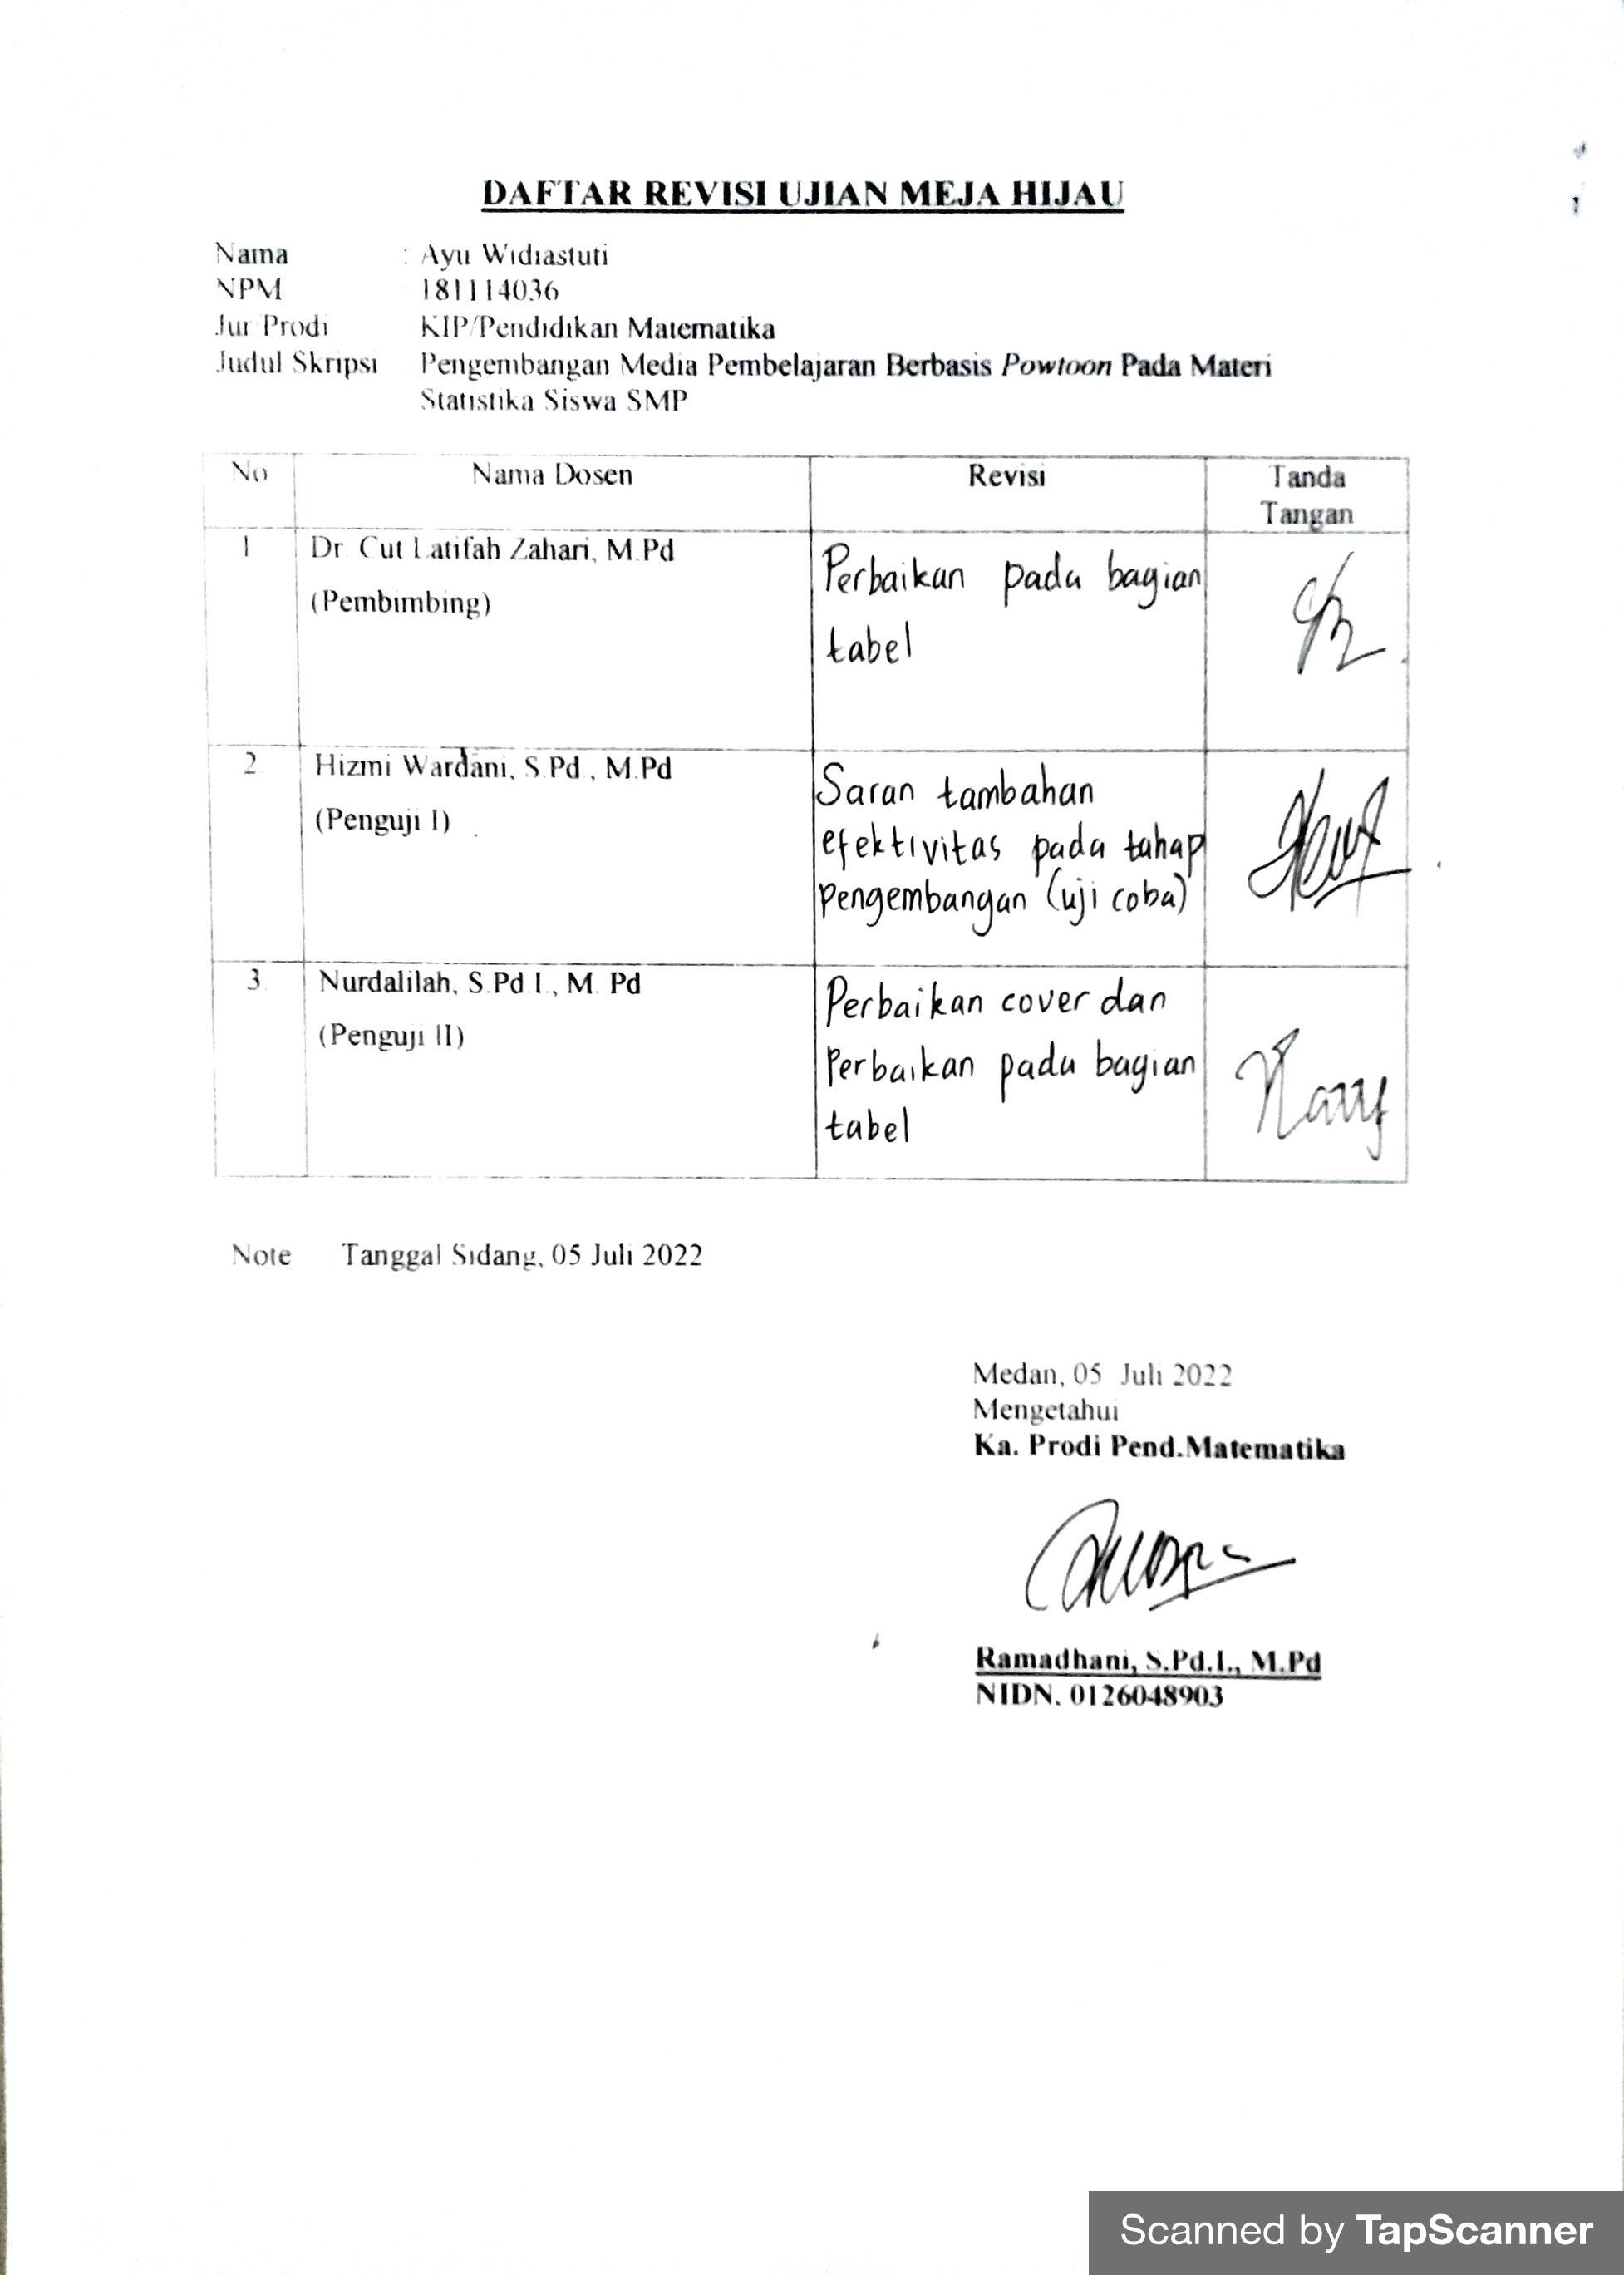 DAFTAR REVISI UJIAN MEJA HIJAU
Nama : Ayu Widiastuti
NPM 181114036
Jur Prodi KIP/Pendidikan Matematika
Judul Skripsi Pengembangan Media Pembelajaran Berbasis Powtoon Pada Materi
Statistika Siswa SMP
No Nama Dosen Revisi Tanda
Tangan
1 Dr Cut Latifah Zahari, M.Pd
(Pembimbing)
Perbaikan pada bagian
tabel
2 Hizmi Wardani, S.Pd , M.Pd
(Penguji I)
Saran tambahan
efektivitas pada tahap
pengembangan (uji coba)
3 Nurdalilah, S.Pd.I., M. Pd
(Penguji II)
Perbaikan cover dan
Perbaikan pada bagian
tabel
Note Tanggal Sidang, 05 Juli 2022
Medan, 05 Juli 2022
Mengetahui
Ka. Prodi Pend.Matematika
Ramadhani, S.Pd.I., M.Pd
NIDN. 0126048903
Scanned by TapScanner